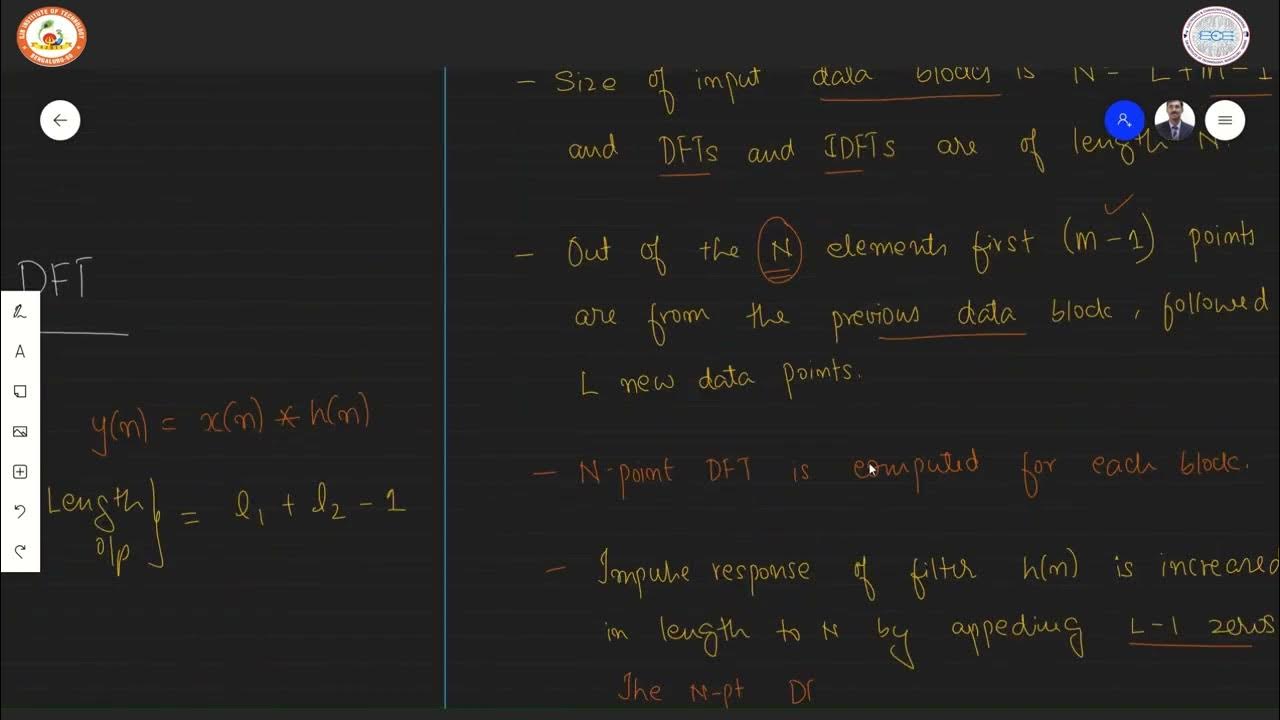 - Size of input data blocks is N = L + m - 1
and DFTs and IDFTs are of length N.
- Out of the N elements first (m-1) points
are from the previous data block, followed
L new data points.
- N-point DFT is computed for each block.
- Impulse response of filter h(n) is increased
in length to N by appeding L-1 zeros
The N-pt
DFT
y(n) = x(n) * h(n)
Length
o/p
= l1 + l2 - 1
A